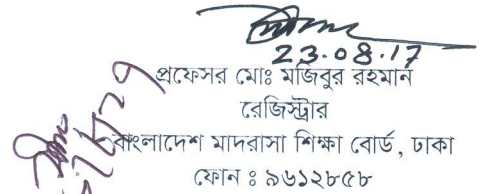 23.08.17
প্রফেসর মোঃ মজিবুর রহমান
রেজিস্ট্রার
বাংলাদেশ মাদরাসা শিক্ষা বোর্ড, ঢাকা
ফোন ঃ ৯৬১২৮৫৮